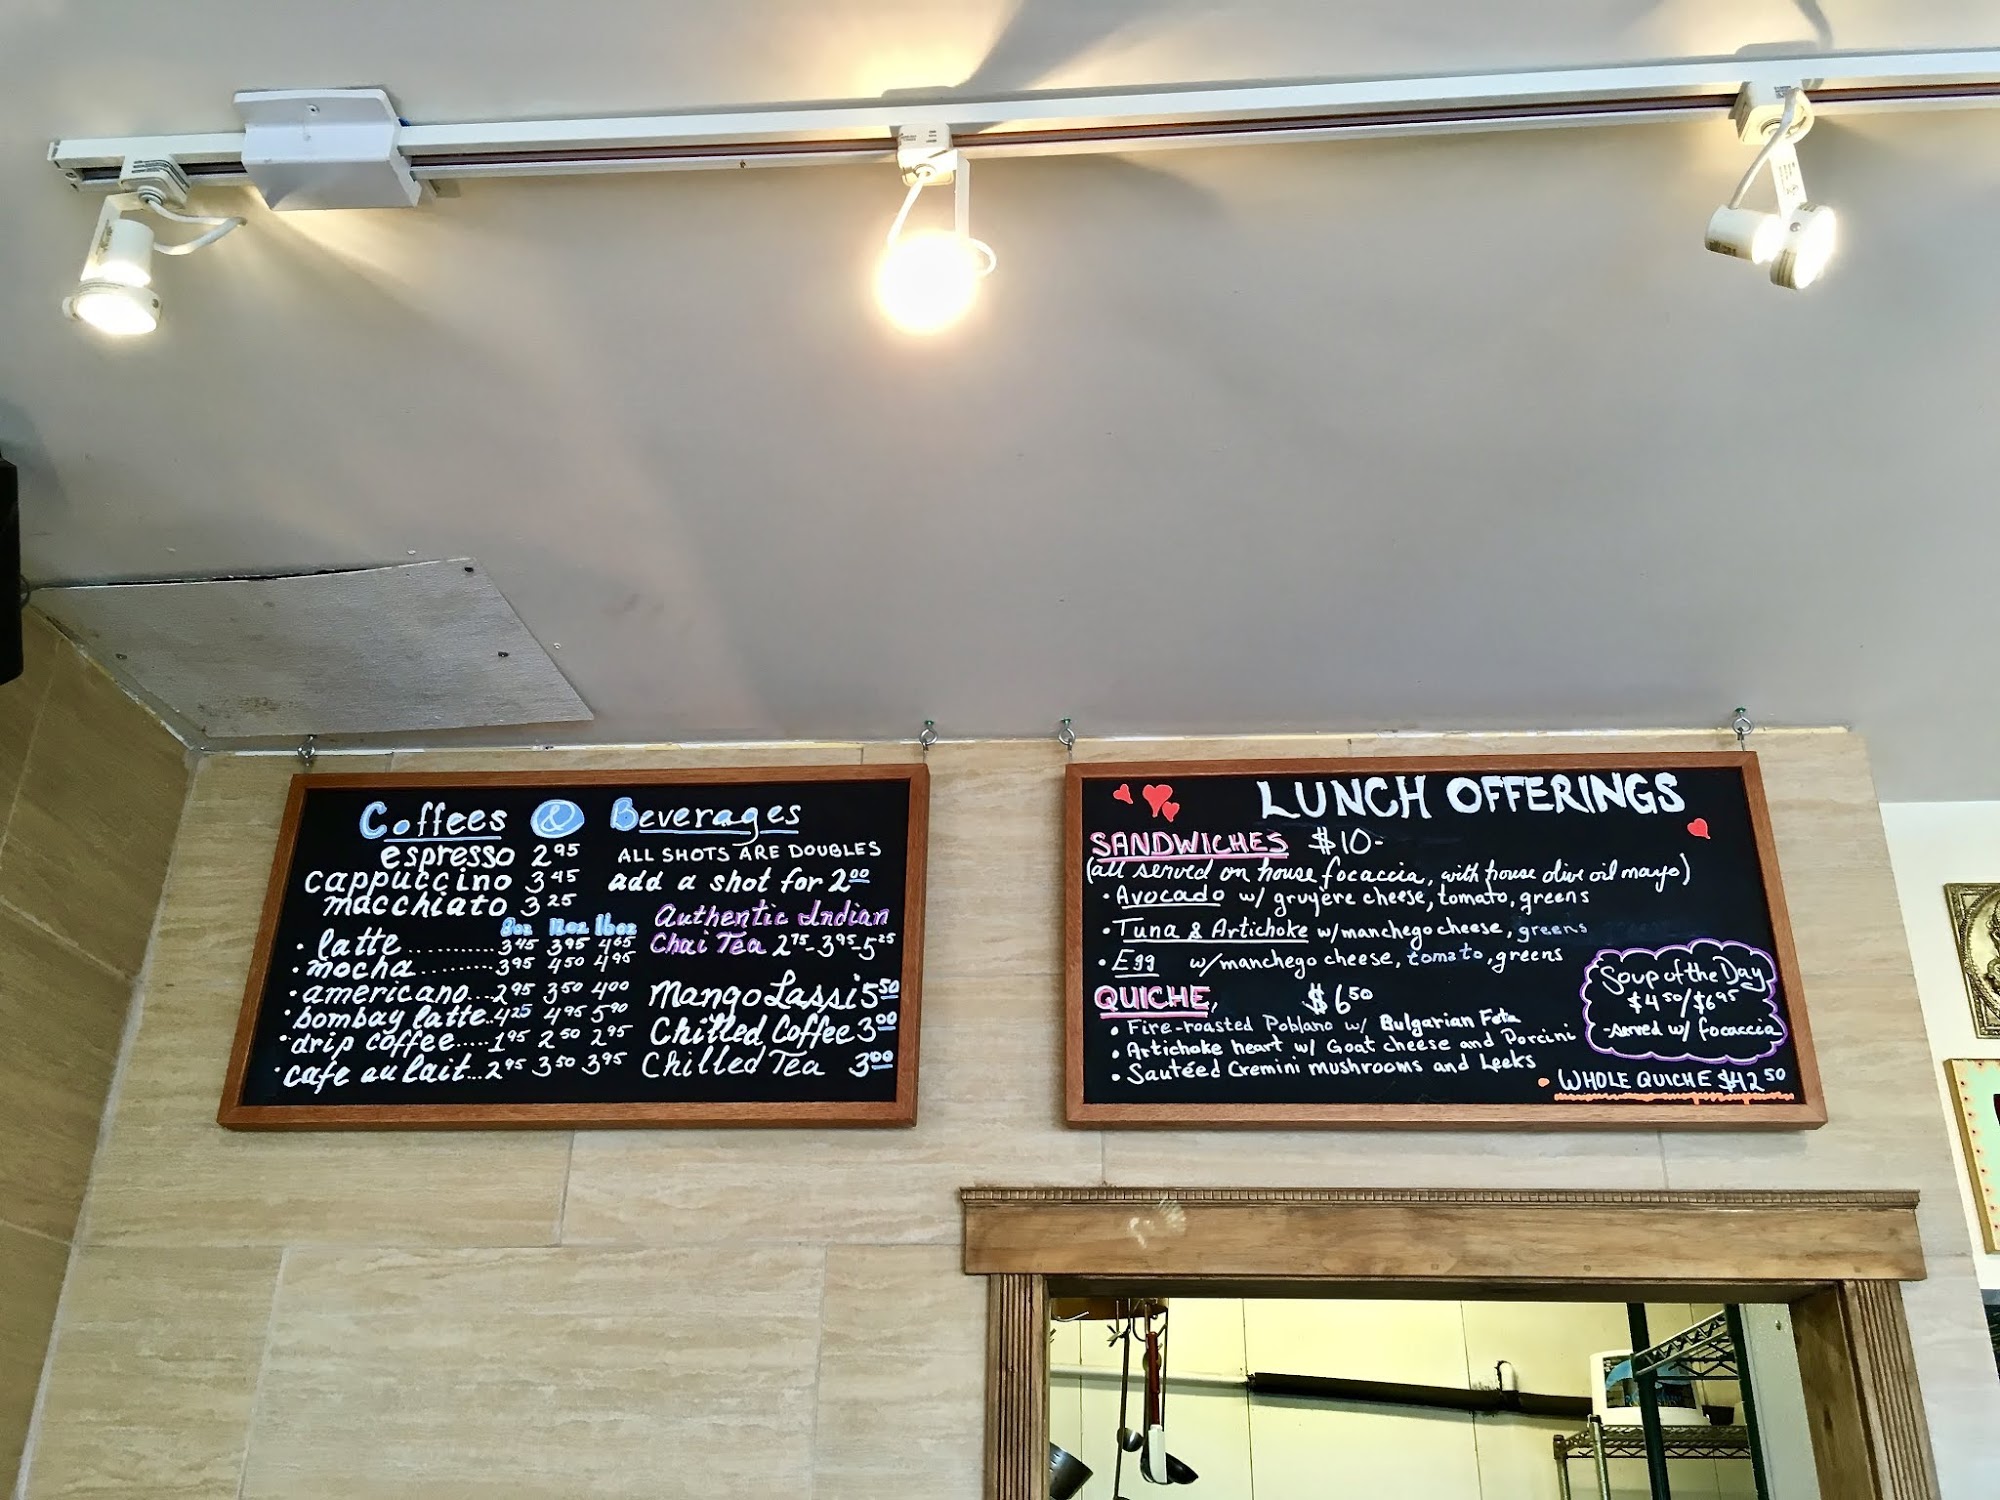 Coffees & Beverages
espresso 2.95
cappuccino 3.45
macchiato 3.25
ALL SHOTS ARE DOUBLES
add a shot for 2.00
8oz 12oz 16oz
• latte........... 3.45 3.95 4.65
• mocha......... 3.95 4.50 4.95
• americano...2.95 3.50 4.00
• bombay latte..4.25 4.95 5.90
• drip coffee.....1.95 2.50 2.95
• cafe au lait...2.95 3.50 3.95
Authentic Indian
Chai Tea 2.75-3.95-5.25
Mango Lassi 5.50
Chilled Coffee 3.00
Chilled Tea 3.00
LUNCH OFFERINGS
SANDWICHES $10-
(all served on house focaccia, with house olive oil mayo)
• Avocado w/ gruyere cheese, tomato, greens
• Tuna & Artichoke w/manchego cheese, greens
• Egg w/manchego cheese, tomato, greens
QUICHE, $6.50
• Fire-roasted Poblano w/ Bulgarian Feta
• Artichoke heart w/ Goat cheese and Porcini
• Sautéed Cremini mushrooms and Leeks
Soup of the Day
$4.50/$6.95
-served w/ focaccia
• WHOLE QUICHE $42.50